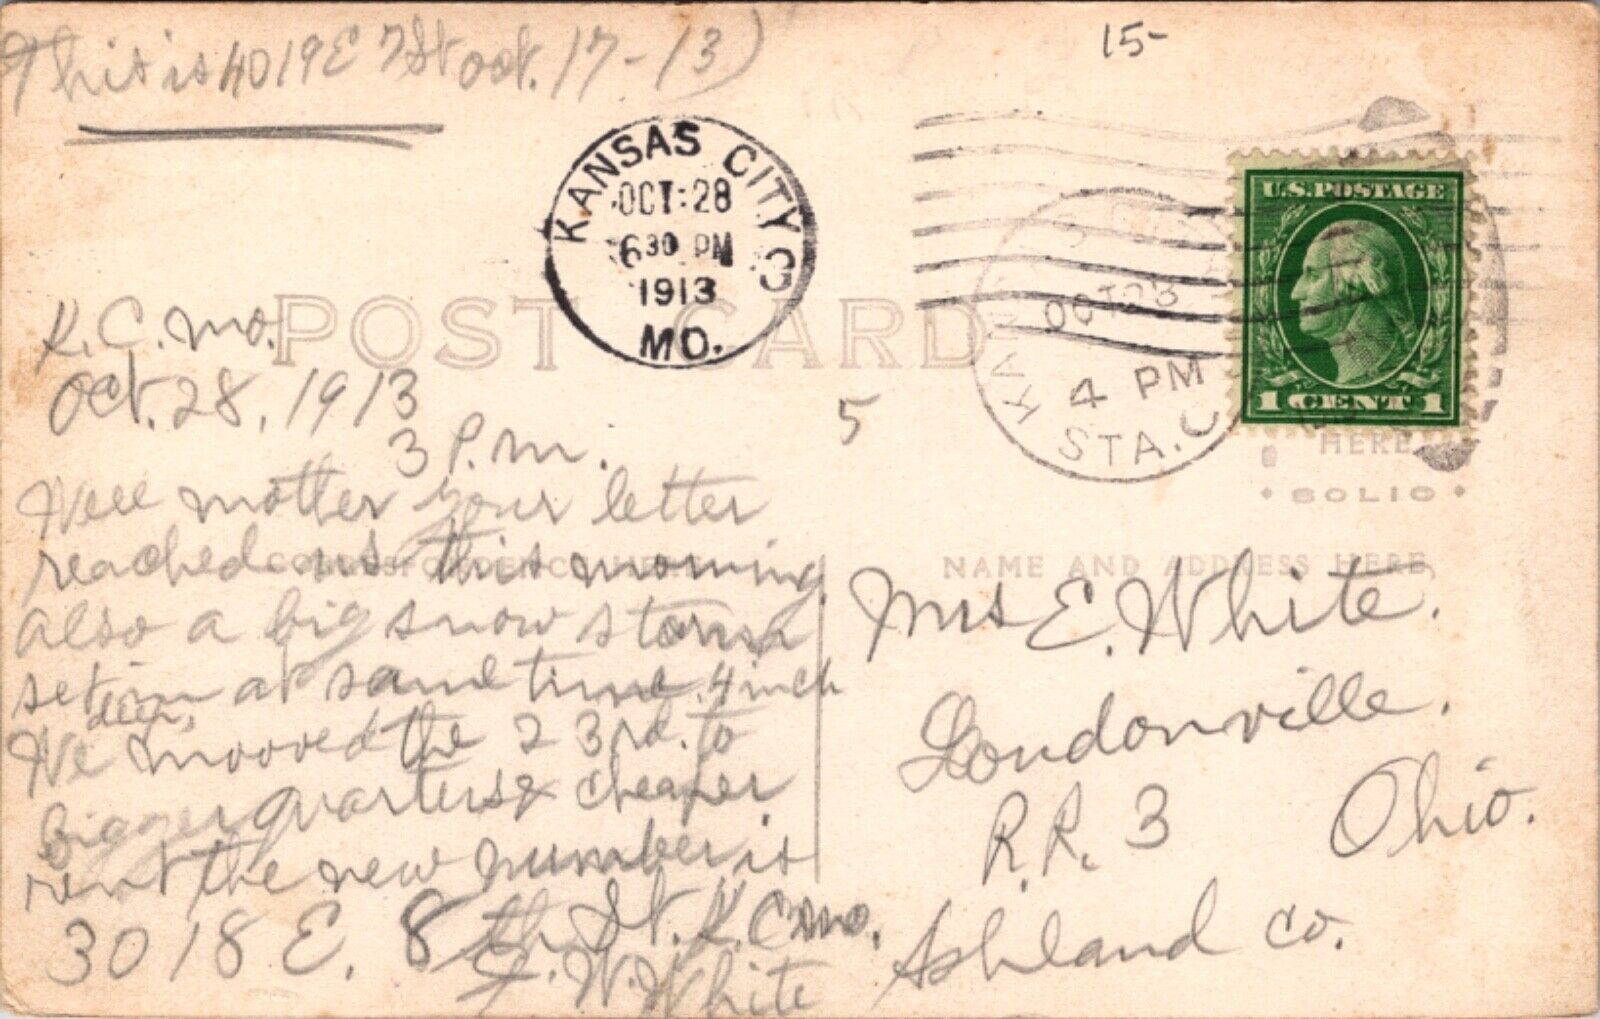 This is 4019 E 7 St oct. 17-13)
15-
KANSAS CITY
OCT 28
630 PM
1913
MO.
OCT 28
4 PM
STA. C
U.S. POSTAGE
1 CENT 1
POST CARD
HERE
SOLIO
5
K. C. Mo.
Oct. 28, 1913
3 P.m.
Well mother your letter
reached us this morning
also a big snow storm
set in at same time. 4 inch
deep,
We mooved the 23rd. to
bigger quarters & cheaper
rent the new number is
3018 E. 8th St. K. C. mo.
F. W. White
CORRESPONDENCE HERE
NAME AND ADDRESS HERE
Mrs E. White.
Loudonville.
R.R. 3 Ohio.
Ashland co.